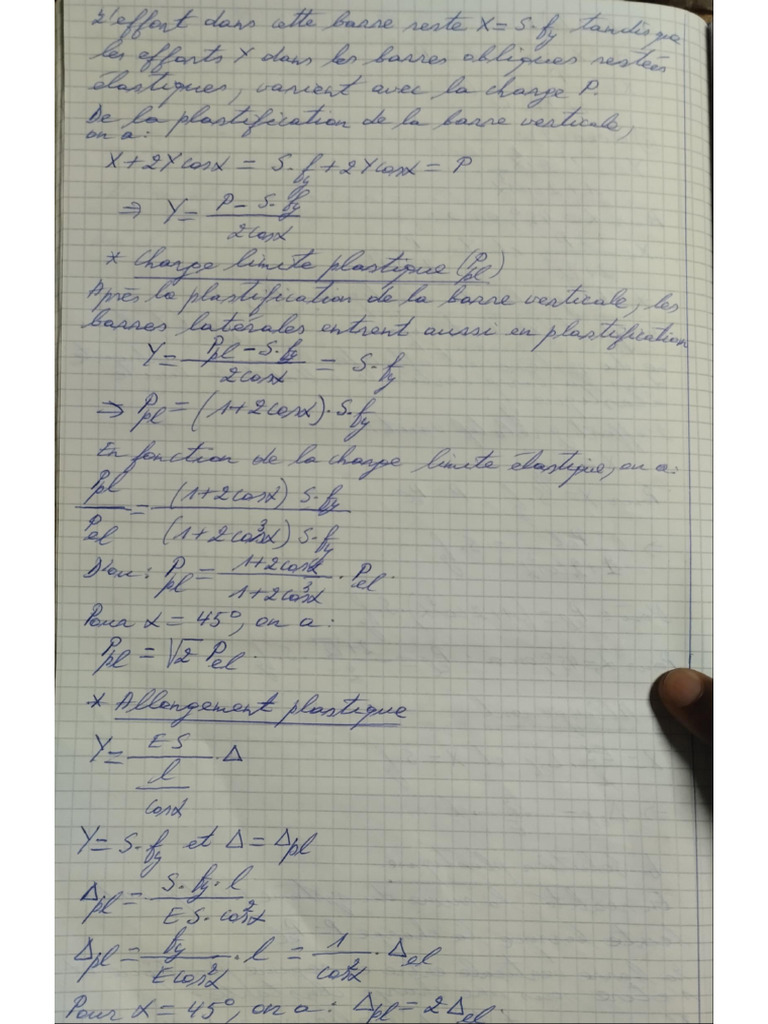 L'effort dans cette barre reste X = S·fy tandis que
les efforts Y dans les barres obliques restées
élastiques, varient avec la charge P.
De la plastification de la barre verticale,
on a:
X + 2Ycosα = S·fy + 2Ycosα = P
⇒ Y = (P - S·fy) / (2cosα)
* Charge limite plastique (Ppl)
Après la plastification de la barre verticale, les
barres latérales entrent aussi en plastification
Y = (Ppl - S·fy) / (2cosα) = S·fy
⇒ Ppl = (1 + 2cosα)·S·fy
En fonction de la charge limite élastique, on a:
Ppl / Pel = (1 + 2cosα) S·fy / (1 + 2cos³α) S·fy
D'ou: Ppl = (1 + 2cosα) / (1 + 2cos³α) · Pel.
Pour α = 45°, on a:
Ppl = √2 Pel.
* Allongement plastique
Y = ES / (l / cosα) · Δ
Y = S·fy et Δ = Δpl
Δpl = S·fy·l / (ES·cos²α)
Δpl = fy / (Ecos²α) · l = 1 / cos²α · Δel
Pour α = 45°, on a: Δpl = 2Δel.